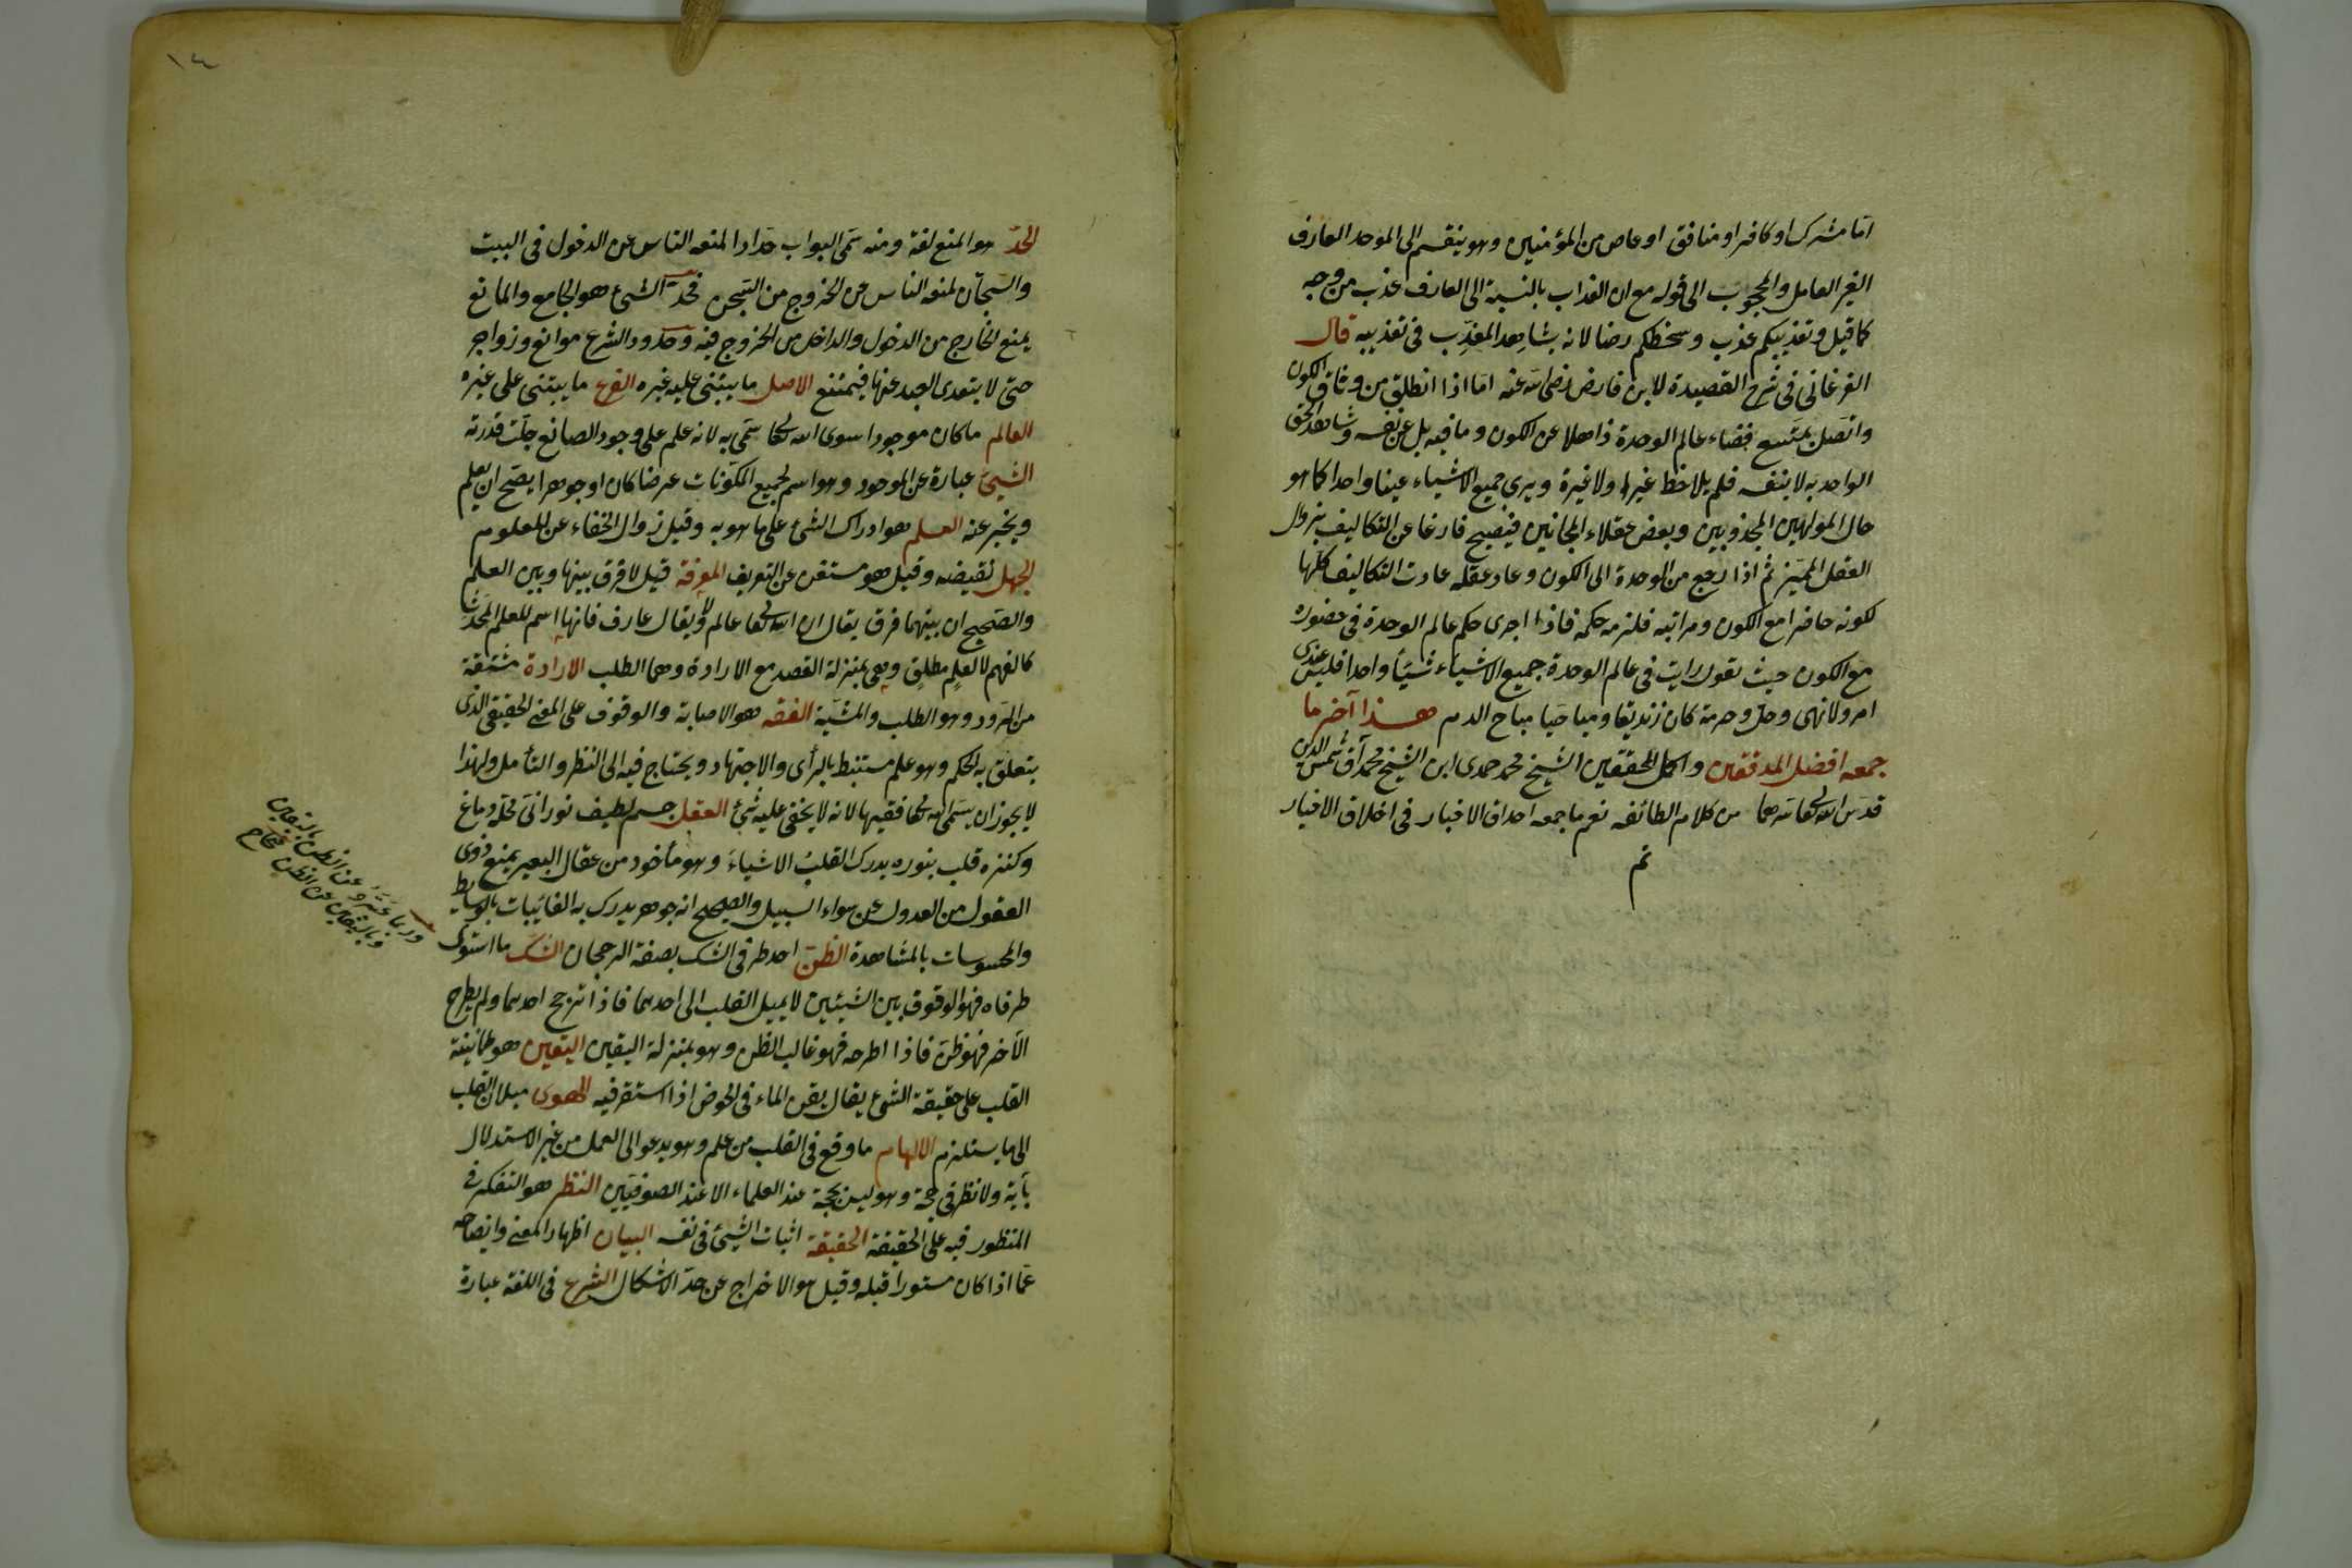 اما مشرك او كافر او منافق او عاص من المؤمنين وهو ينقسم الى الموحد العارف
الغير العامل والمحجوب الى قوله مع ان العذاب بالنسبة الى العارف عذب من وجه
كما قيل وتعذيبكم عذب وسخطكم رضا لانه يشاهد المعذِّب فى تعذيبه قال
الفرغانى فى شرح القصيدة لابن فارض رضى الله عنه اما اذا انطلق من وثاق الكون
واتصل بمتسع فضاء عالم الوحدة ذاهلا عن الكون وما فيه بل عن نفسه وشاهد الحق
الواحد به لا بنفسه فلم يلاحظ غيرا ولا غيرة ويرى جميع الاشياء عينا واحدا كما هو
حال المولهين المجذوبين وبعض عقلاء المجانين فيصبح فارغا عن التكاليف بزوال
العقل المميز ثم اذا رجع من الوحدة الى الكون وعاد عقله عادت التكاليف كلها
لكونه حاضرا مع الكون ومراتبه فلزمه حكمه فاذا اجرى حكم عالم الوحدة فى حضوره
مع الكون حيث يقول رايت فى عالم الوحدة جميع الاشياء شيئا واحدا فليس عندى
امر ولا نهى وحل وحرمة كان زنديقا ومباحيا مباح الدم هذا آخر ما
جمعه افضل المدققين واكمل المحققين الشيخ محمد حمدى ابن الشيخ محمد آق شمس الدين
قدس الله تعالى سرهما من كلام الطائفه نعم ما جمعه احداق الاخبار فى اخلاق الاخيار
تم
١٤
الحدّ هو المنع لغة ومنه سمى البواب حدادا لمنعه الناس عن الدخول فى البيت
والسجّان لمنعه الناس من الخروج من السجن فحدّ الشئ هو الجامع والمانع
يمنع الخارج من الدخول والداخل من الخروج فيه وحدود الشرع موانع وزواجر
حتى لا يتعدى العبد عنها فيمتنع الاصل ما يبتنى عليه غيره الفرع ما يبتنى على غيره
العالم ما كان موجودا سوى الله تعالى سمى به لانه علم على وجود الصانع جلّت قدرته
الشيئ عبارة عن الموجود وهو اسم لجميع المكوّنات عرضا كان او جوهرا يصح ان يعلم
ويخبر عنه العلم هو ادراك الشئ على ما هو به وقيل زوال الخفاء عن المعلوم
الجهل نقيضه وقيل هو مستغن عن التعريف المعرفة قيل لا فرق بينها وبين العلم
والصحيح ان بينهما فرق يقال ان الله تعالى عالم ولا يقال عارف فانها اسم للعلم المحدَث
كالفهم لا لعلمٍ مطلق وهى بمنزلة القصد مع الارادة وهما الطلب الارادة مشتقة
من الرَود وهو الطلب والمشيّة الفقه هو الاصابة والوقوف على المعنى الحقيقى الذى
يتعلق به الحكم وهو علم مستنبط بالرأى والاجتهاد ويحتاج فيه الى النظر والتأمل ولهذا
لا يجوز ان يسمى الله تعالى فقيها لانه لا يخفى عليه شئ العقل جسم لطيف نورانىّ محله دماغ
وكنزه قلب بنوره يدرك القلب الاشياءَ وهو مأخوذ من عقال البعير يمنع ذوى
العقول من العدول عن سواء السبيل والصحيح انه جوهر يدرك به الغائبات بالوسايط
والمحسوسات بالمشاهدة الظنّ احد طرفى الشك بصفة الرجحان الشك ما استوى
طرفاه فهو الوقوف بين الشيئين لا يميل القلب الى احدهما فاذا ترجح احدهما ولم يطرح
الآخر فهو ظن فاذا اطرحه فهو غالب الظن وهو بمنزلة اليقين اليقين هو طمأنينة
القلب على حقيقة الشئ يقال يقن الماء فى الحوض اذا استقر فيه الهوى ميلان القلب
الى ما يستلزم الالهام ما وقع فى القلب من علم وهو يدعو الى العمل من غير الاستدلال
بآية ولا نظر فى حجة وهو ليس بحجة عند العلماء الا عند الصوفيين النظر هو التفكر فى
المنظور فيه على الحقيقة الحقيقة اثبات الشيئ فى نفسه البيان اظهار المعنى وايضاحه
عمّا اذا كان مستورا قبله وقيل هو الاخراج عن حدّ الاشكال الشرع فى اللغة عبارة
وربما عبّروا عن الظن باليقين
وباليقين عن الظن